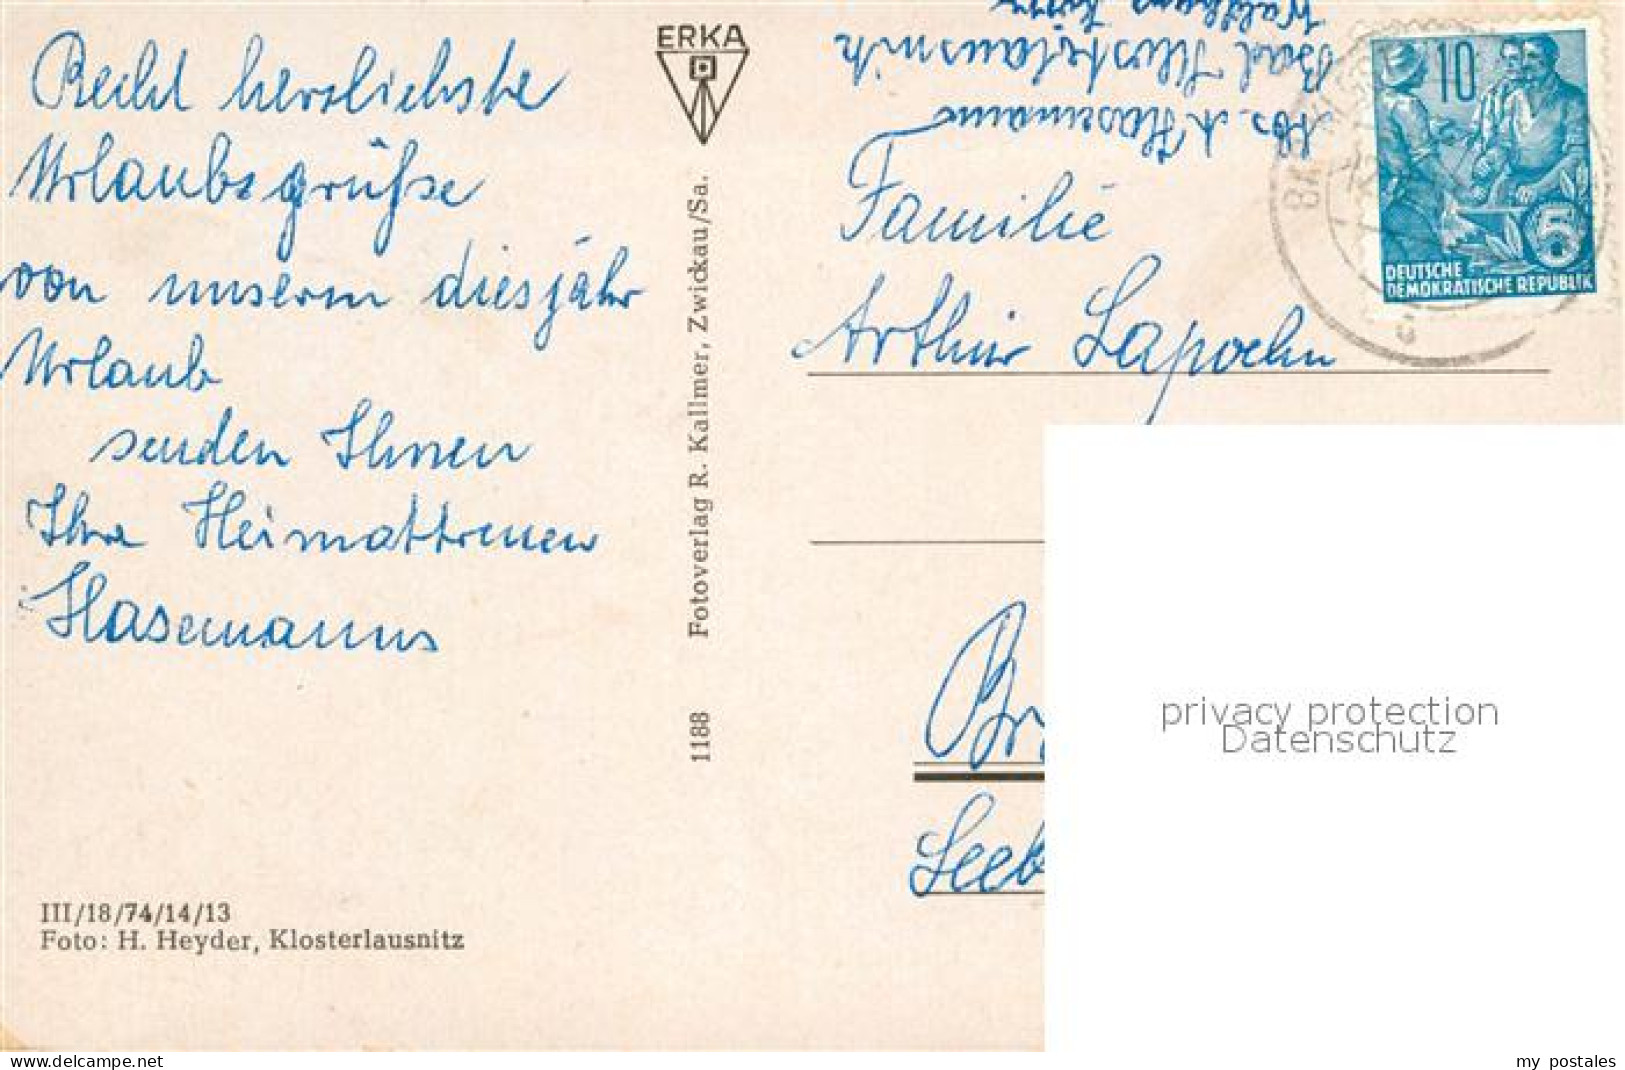 Recht herzlichste
Urlaubsgrüße
von unserem diesjähr
Urlaub
senden Ihnen
Ihre Heimattreuen
Hasemanns
III/18/74/14/13
Foto: H. Heyder, Klosterlausnitz
ERKA
1188 Fotoverlag R. Kallmer, Zwickau/Sa.
Abs. A. Hasemann
Bad Klosterlausnitz
10
5
DEUTSCHE
DEMOKRATISCHE REPUBLIK
Familie
Arthur
Seeb
privacy protection
Datenschutz
www.delcampe.net
my_postales